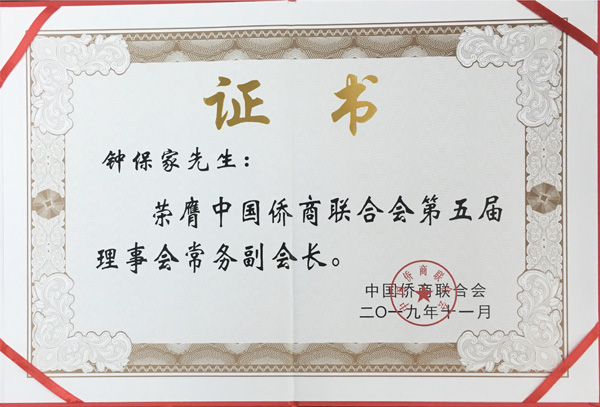 证书
钟保家先生：
荣膺中国侨商联合会第五届
理事会常务副会长。
中国侨商联合会
二〇一九年十一月
中国侨商联合会